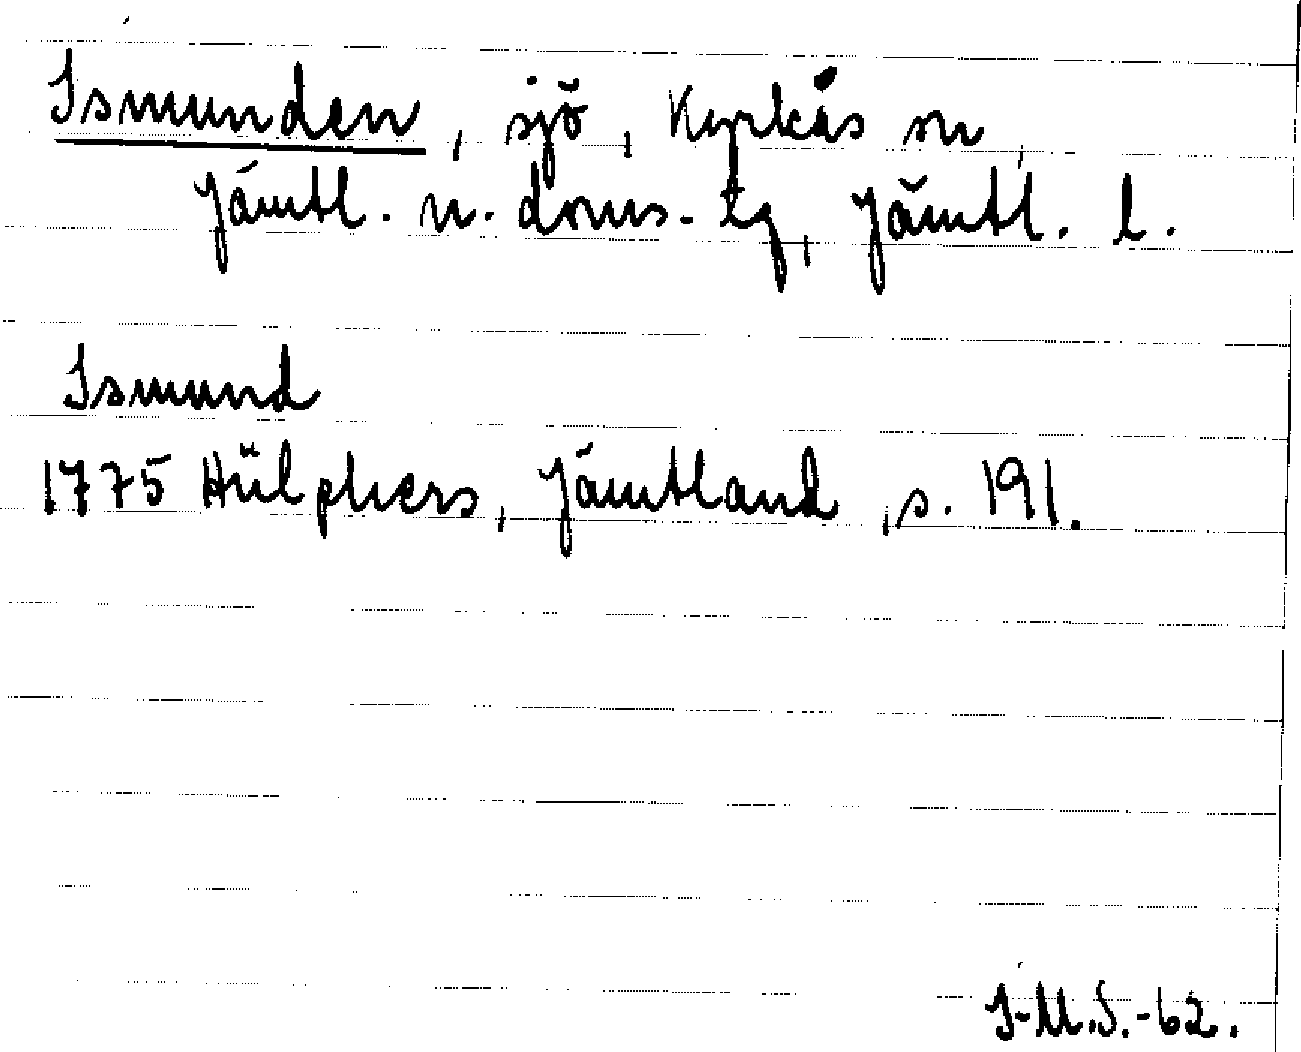 Ismunden, sjö, Kyrkås sn,
Jämtl. n. doms. tg, Jämtl. l.
Ismund
1775 Hülphers, Jämtland, s. 191.
I-M.S.-62.